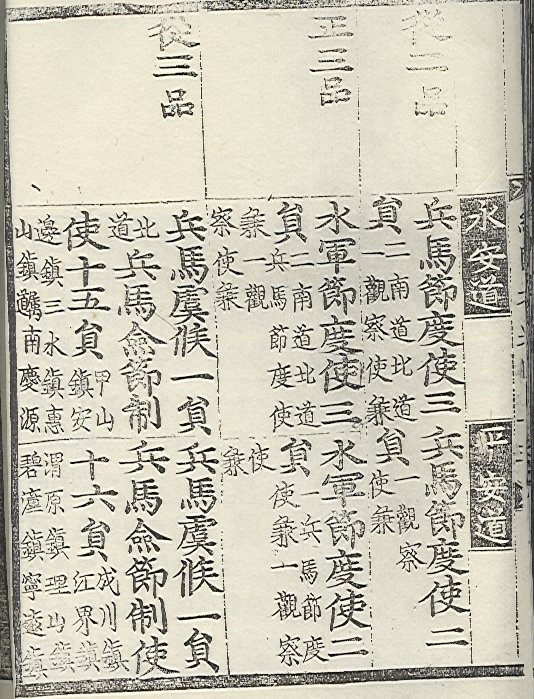 從二品
正三品
從三品
永安道
兵馬節度使三
貟
二南道北道
一觀察使兼
水軍節度使三
貟
二南道北道
兵馬節度使
兼一觀
察使兼
兵馬虞候一貟
北
道
兵馬僉節制
使十五貟
甲山
鎮安
邊鎮三水鎮惠
山鎮南慶源
平安道
兵馬節度使二
貟
一觀察
使兼
水軍節度使二
貟
一兵馬節度
使兼一觀察
使
兼
兵馬虞候一貟
兵馬僉節制使
十六貟
成川鎮
江界鎮
渭原鎮理山鎮
碧潼鎮寧遠鎮